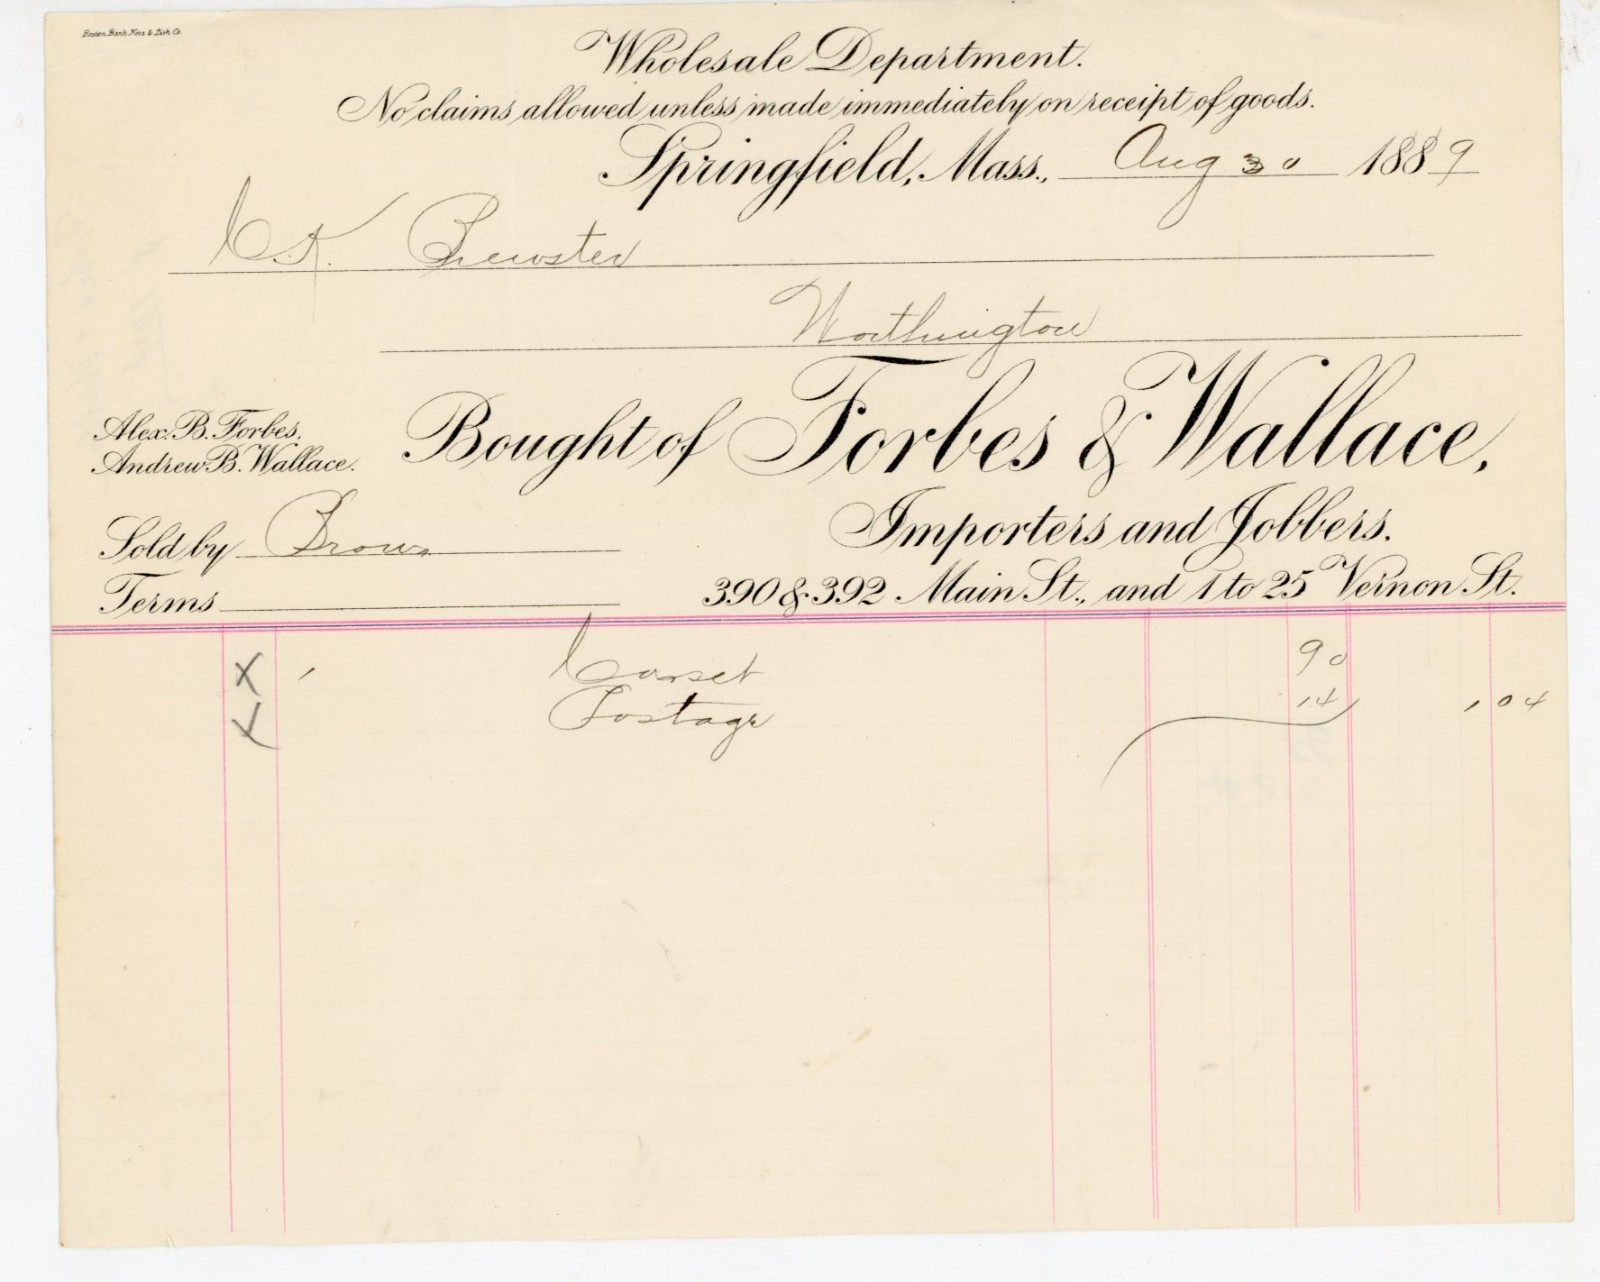 Boston Bank Note & Lith Co.
Wholesale Department.
No claims allowed unless made immediately on receipt of goods.
Springfield, Mass., Aug 30 1889
C. K. Brewster
Worthington
Alex. B. Forbes.
Andrew B. Wallace.
Bought of Forbes & Wallace,
Importers and Jobbers.
Sold by Brown
390 & 392 Main St., and 1 to 25 Vernon St.
Terms
X 1 Corset 90
X Postage 14 1 04